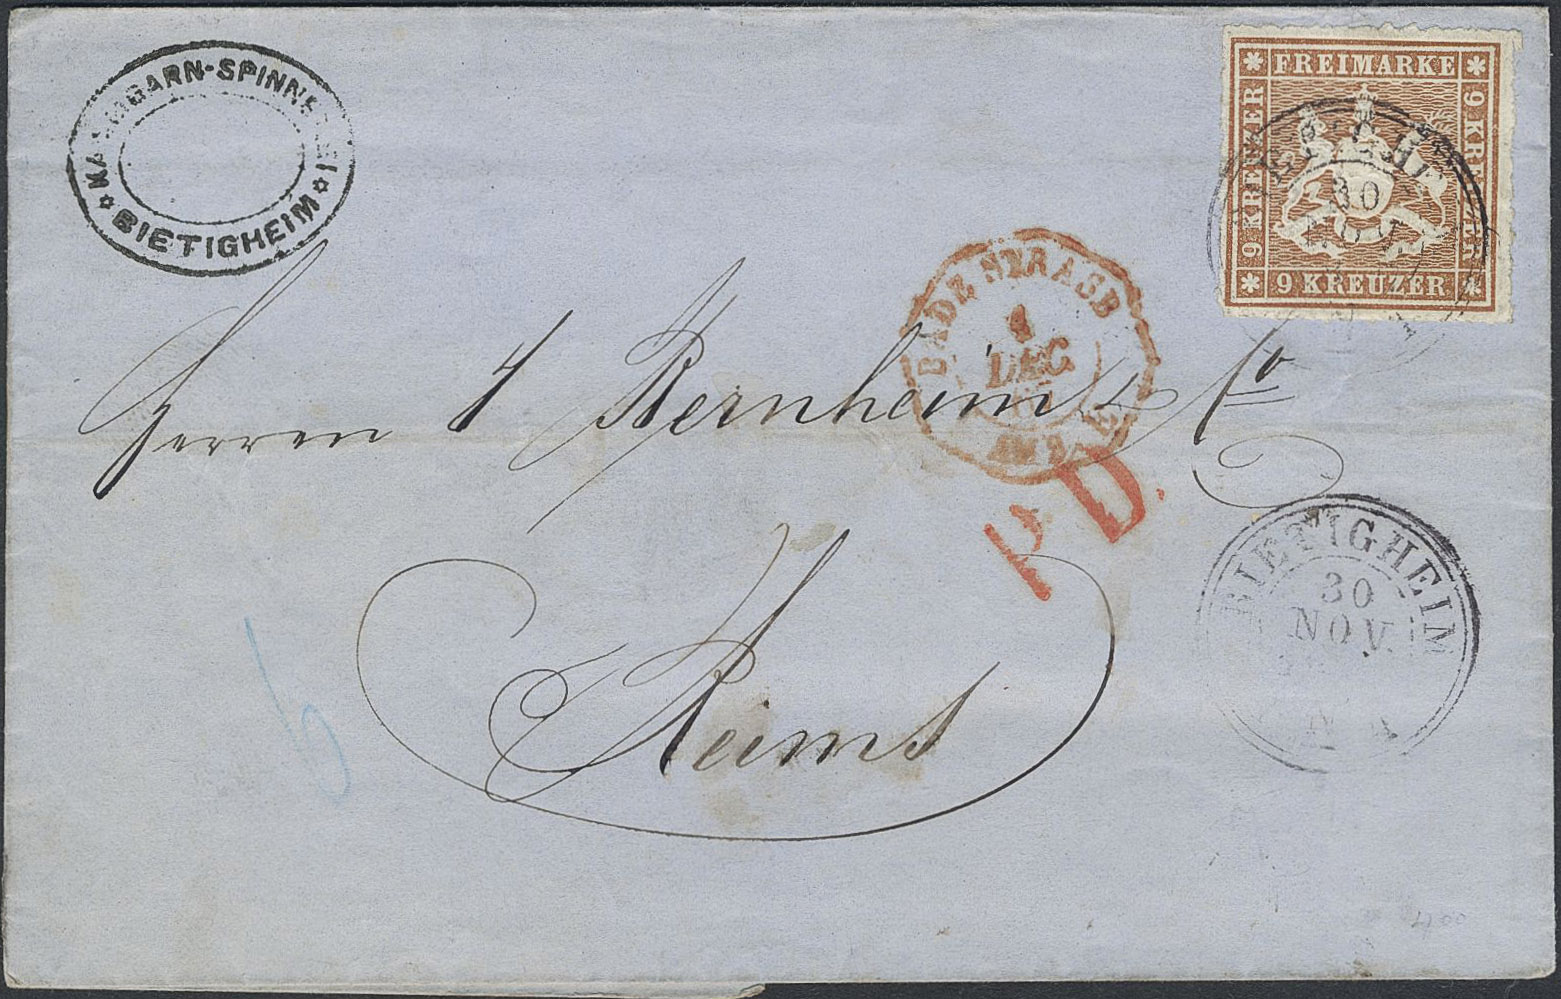 KAMMGARN-SPINNEREI
BIETIGHEIM
FREIMARKE
9 KREUZER
9 KREUZER
9 KREUZER
30
NOV
BADE STRASB
1
DEC
AMB. E
P.D.
Herren J Bernheim & Co
Reims
BIETIGHEIM
30
NOV.
400